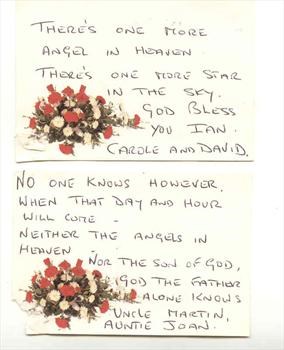 THERE'S ONE MORE
ANGEL IN HEAVEN.
THERE'S ONE MORE STAR
IN THE SKY.
GOD BLESS
YOU IAN.
CAROLE AND DAVID.
NO ONE KNOWS HOWEVER,
WHEN THAT DAY AND HOUR
WILL COME -
NEITHER THE ANGELS IN
HEAVEN
NOR THE SON OF GOD,
GOD THE FATHER
ALONE KNOWS
UNCLE MARTIN,
AUNTIE JOAN.